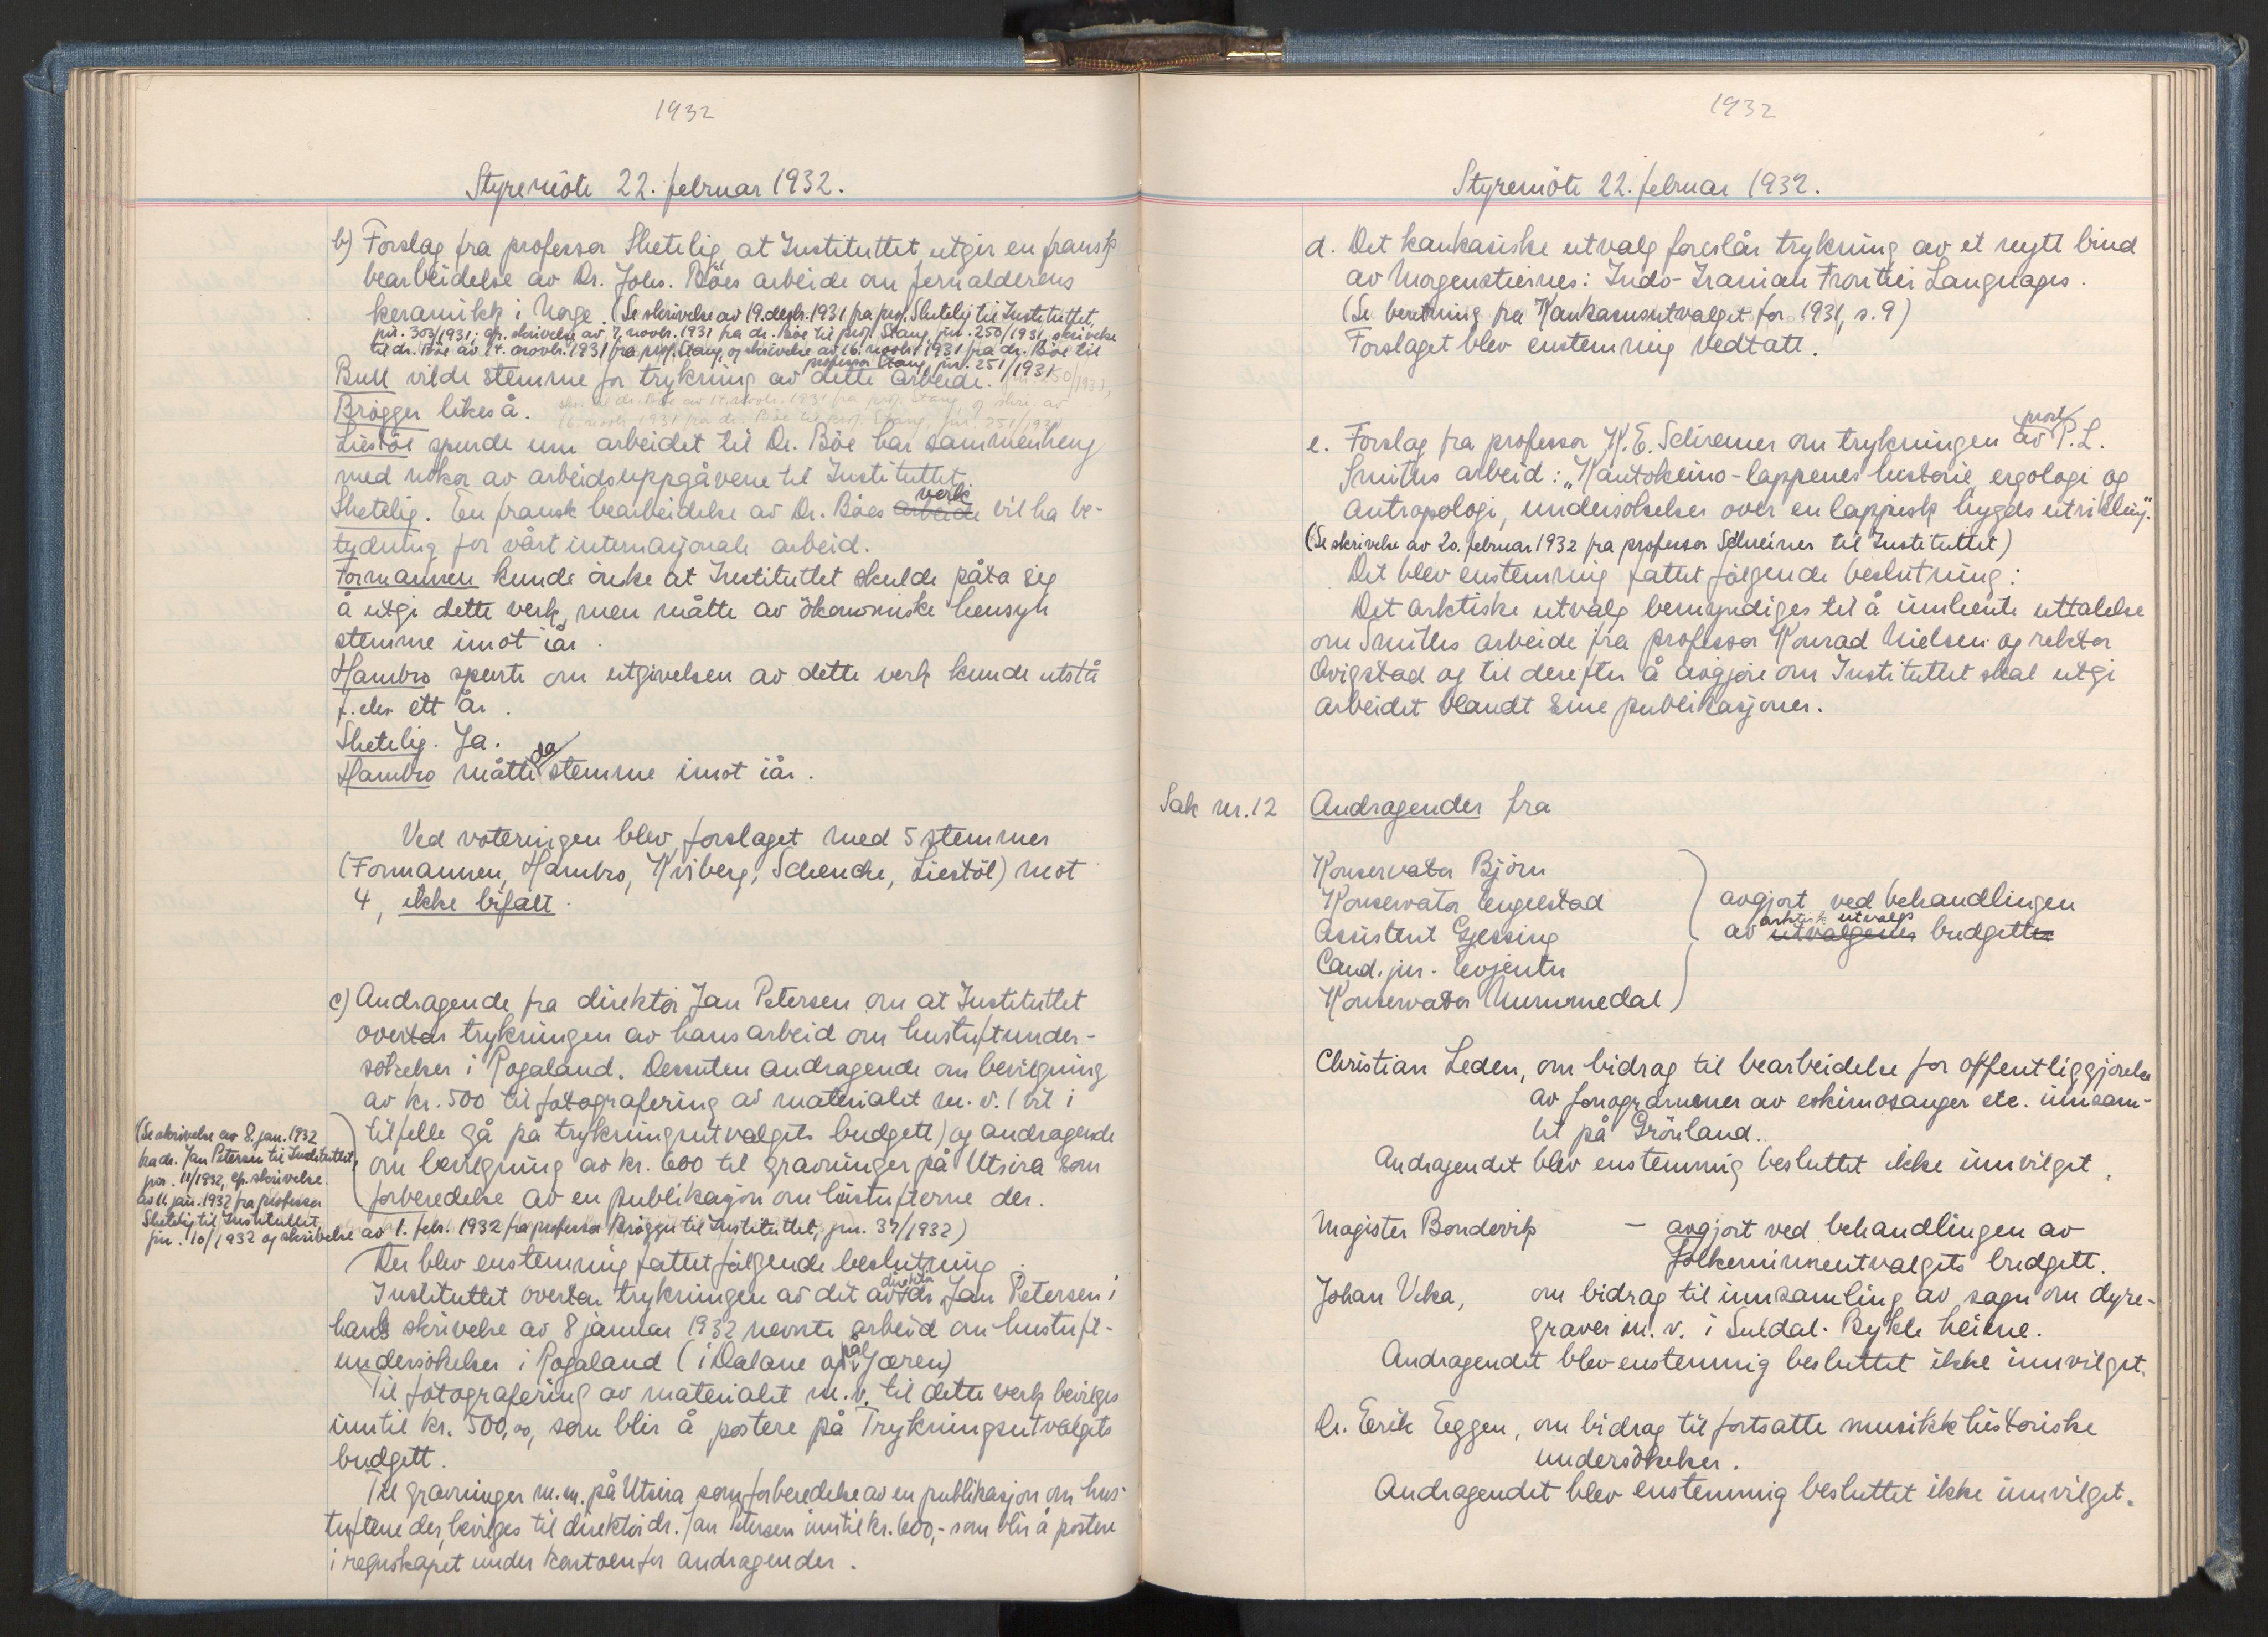 1932
Styremöte 22. februar 1932.
b) Forslag fra professor Shetelig, at Instituttet utgir en fransk
bearbeidelse av Dr. Johs. Böes arbeide om jernalderens
keramikk i Norge. (Se skrivelse av 19. desbr. 1931 fra prof. Shetelig til Instituttet,
jnr. 303/1931; cfr. skrivelse av 7. novbr. 1931 fra dr. Böe til prof. Stang, jnr. 250/1931, skrivelse
til dr. Böe av 14. novbr. 1931 fra prof. Stang, og skrivelse av 16. novbr. 1931 fra dr. Böe til
professor Stang, jnr. 251/1931
Bull vilde stemme for trykning av dette arbeide. jnr. 250/1931,
Brögger likeså. skr. til dr. Böe av 14. novbr. 1931 fra prof. Stang, og skri. av
16. novbr. 1931 fra dr. Böe til prof. Stang, jnr. 251/1931
Liestöl spurde um arbeidet til Dr. Böe har sammenheng
med nokor av arbeidsuppgåvene til Instituttet.
Shetelig. En fransk bearbeidelse av Dr. Böes arbeide verk vil ha be-
tydning for vårt internasjonale arbeid.
Formannen kunde önske at Instituttet skulde påta sig
å utgi dette verk, men måtte av ökonomiske hensyn
stemme imot iår.
Hambro spurte om utgivelsen av dette verk kunde utstå
f. eks. ett år.
Shetelig. Ja.
Hambro måtte da stemme imot iår.
Ved voteringen blev forslaget med 5 stemmer
(Formannen, Hambro, Kviberg, Schencke, Liestöl) mot
4, ikke bifalt.
c) Andragende fra direktör Jan Petersen om at Instituttet
overtar trykningen av hans arbeid om hustuftunder-
sökelser i Rogaland. Dessuten andragende om bevilgning
av kr. 500 til fotografering av materialet m. v. (vil i
tilfelle gå på trykningsutvalgets budgett) og andragende
om bevilgning av kr. 600 til gravninger på Utsira som
forberedelse av en publikasjon om hustufterne der.
(Se skrivelse av 8. jan. 1932
fra dr. Jan Petersen til Instituttet,
jnr. 11/1932, cp. skrivelse
av 11. jan. 1932 fra professor
Shetelig til Instituttet,
jnr. 10/1932 og skrivelse av 1. febr. 1932 fra professor Brögger til Instituttet, jnr. 37/1932)
Der blev enstemmig fattet fölgende beslutning:
Instituttet overtar trykningen av det av direktör dr. Jan Petersen i
hans skrivelse av 8 januar 1932 nevnte arbeid om hustuft-
undersökelser i Rogaland (i Dalane og på Jæren)
Til fotografering av materialet m. v. til dette verk bevilges
inntil kr. 500,00, som blir å postere på Trykningsutvalgets
budgett.
Til gravninger m. m. på Utsira som forberedelse av en publikasjon om hus-
tuftene der, bevilges til direktör dr. Jan Petersen inntil kr. 600,- som blir å postere
i regnskapet under kontoen for andragender.
1932
Styremöte 22. februar 1932.
d. Det kaukasiske utvalg foreslår trykning av et nytt bind
av Morgenstiernes: Indo-Iranian Frontier Languages.
(Se beretning fra Kaukasusutvalget for 1931, s. 9)
Forslaget blev enstemmig vedtatt.
e. Forslag fra professor K. E. Schreiner om trykningen av prost P. L.
Smiths arbeid: "Kautokeino-lappenes historie, ergologi og
antropologi, undersökelser over en lappisk bygds utvikling".
(Se skrivelse av 20. februar 1932 fra professor Schreiner til Instituttet)
Det blev enstemmig fattet fölgende beslutning:
Det arktiske utvalg bemyndiges til å innhente uttalelse
om Smiths arbeide fra professor Konrad Nielsen og rektor
Qvigstad og til derefter å avgjöre om Instituttet skal utgi
arbeidet blandt sine publikasjoner.
Sak nr. 12 Andragender fra
Konservator Björn
Konservator Engelstad
Assistent Gjessing
Cand. jur. Evjenth
Konservator Nummedal
avgjort ved behandlingen
av utvalgenes arktisk utvalgs budgetter
Christian Leden, om bidrag til bearbeidelse for offentliggjörelse
av fonogrammer av eskimosanger etc. innsam-
let på Grönland.
Andragendet blev enstemmig besluttet ikke innvilget.
Magister Bondevik – avgjort ved behandlingen av
folkeminneutvalgets budgett.
Johan Veka, om bidrag til innsamling av sagn om dyre-
graver m. v. i Suldal-Bykle heiene.
Andragendet blev enstemmig besluttet ikke innvilget.
Dr. Erik Eggen, om bidrag til fortsatte musikkhistoriske
undersökelser.
Andragendet blev enstemmig besluttet ikke innvilget.